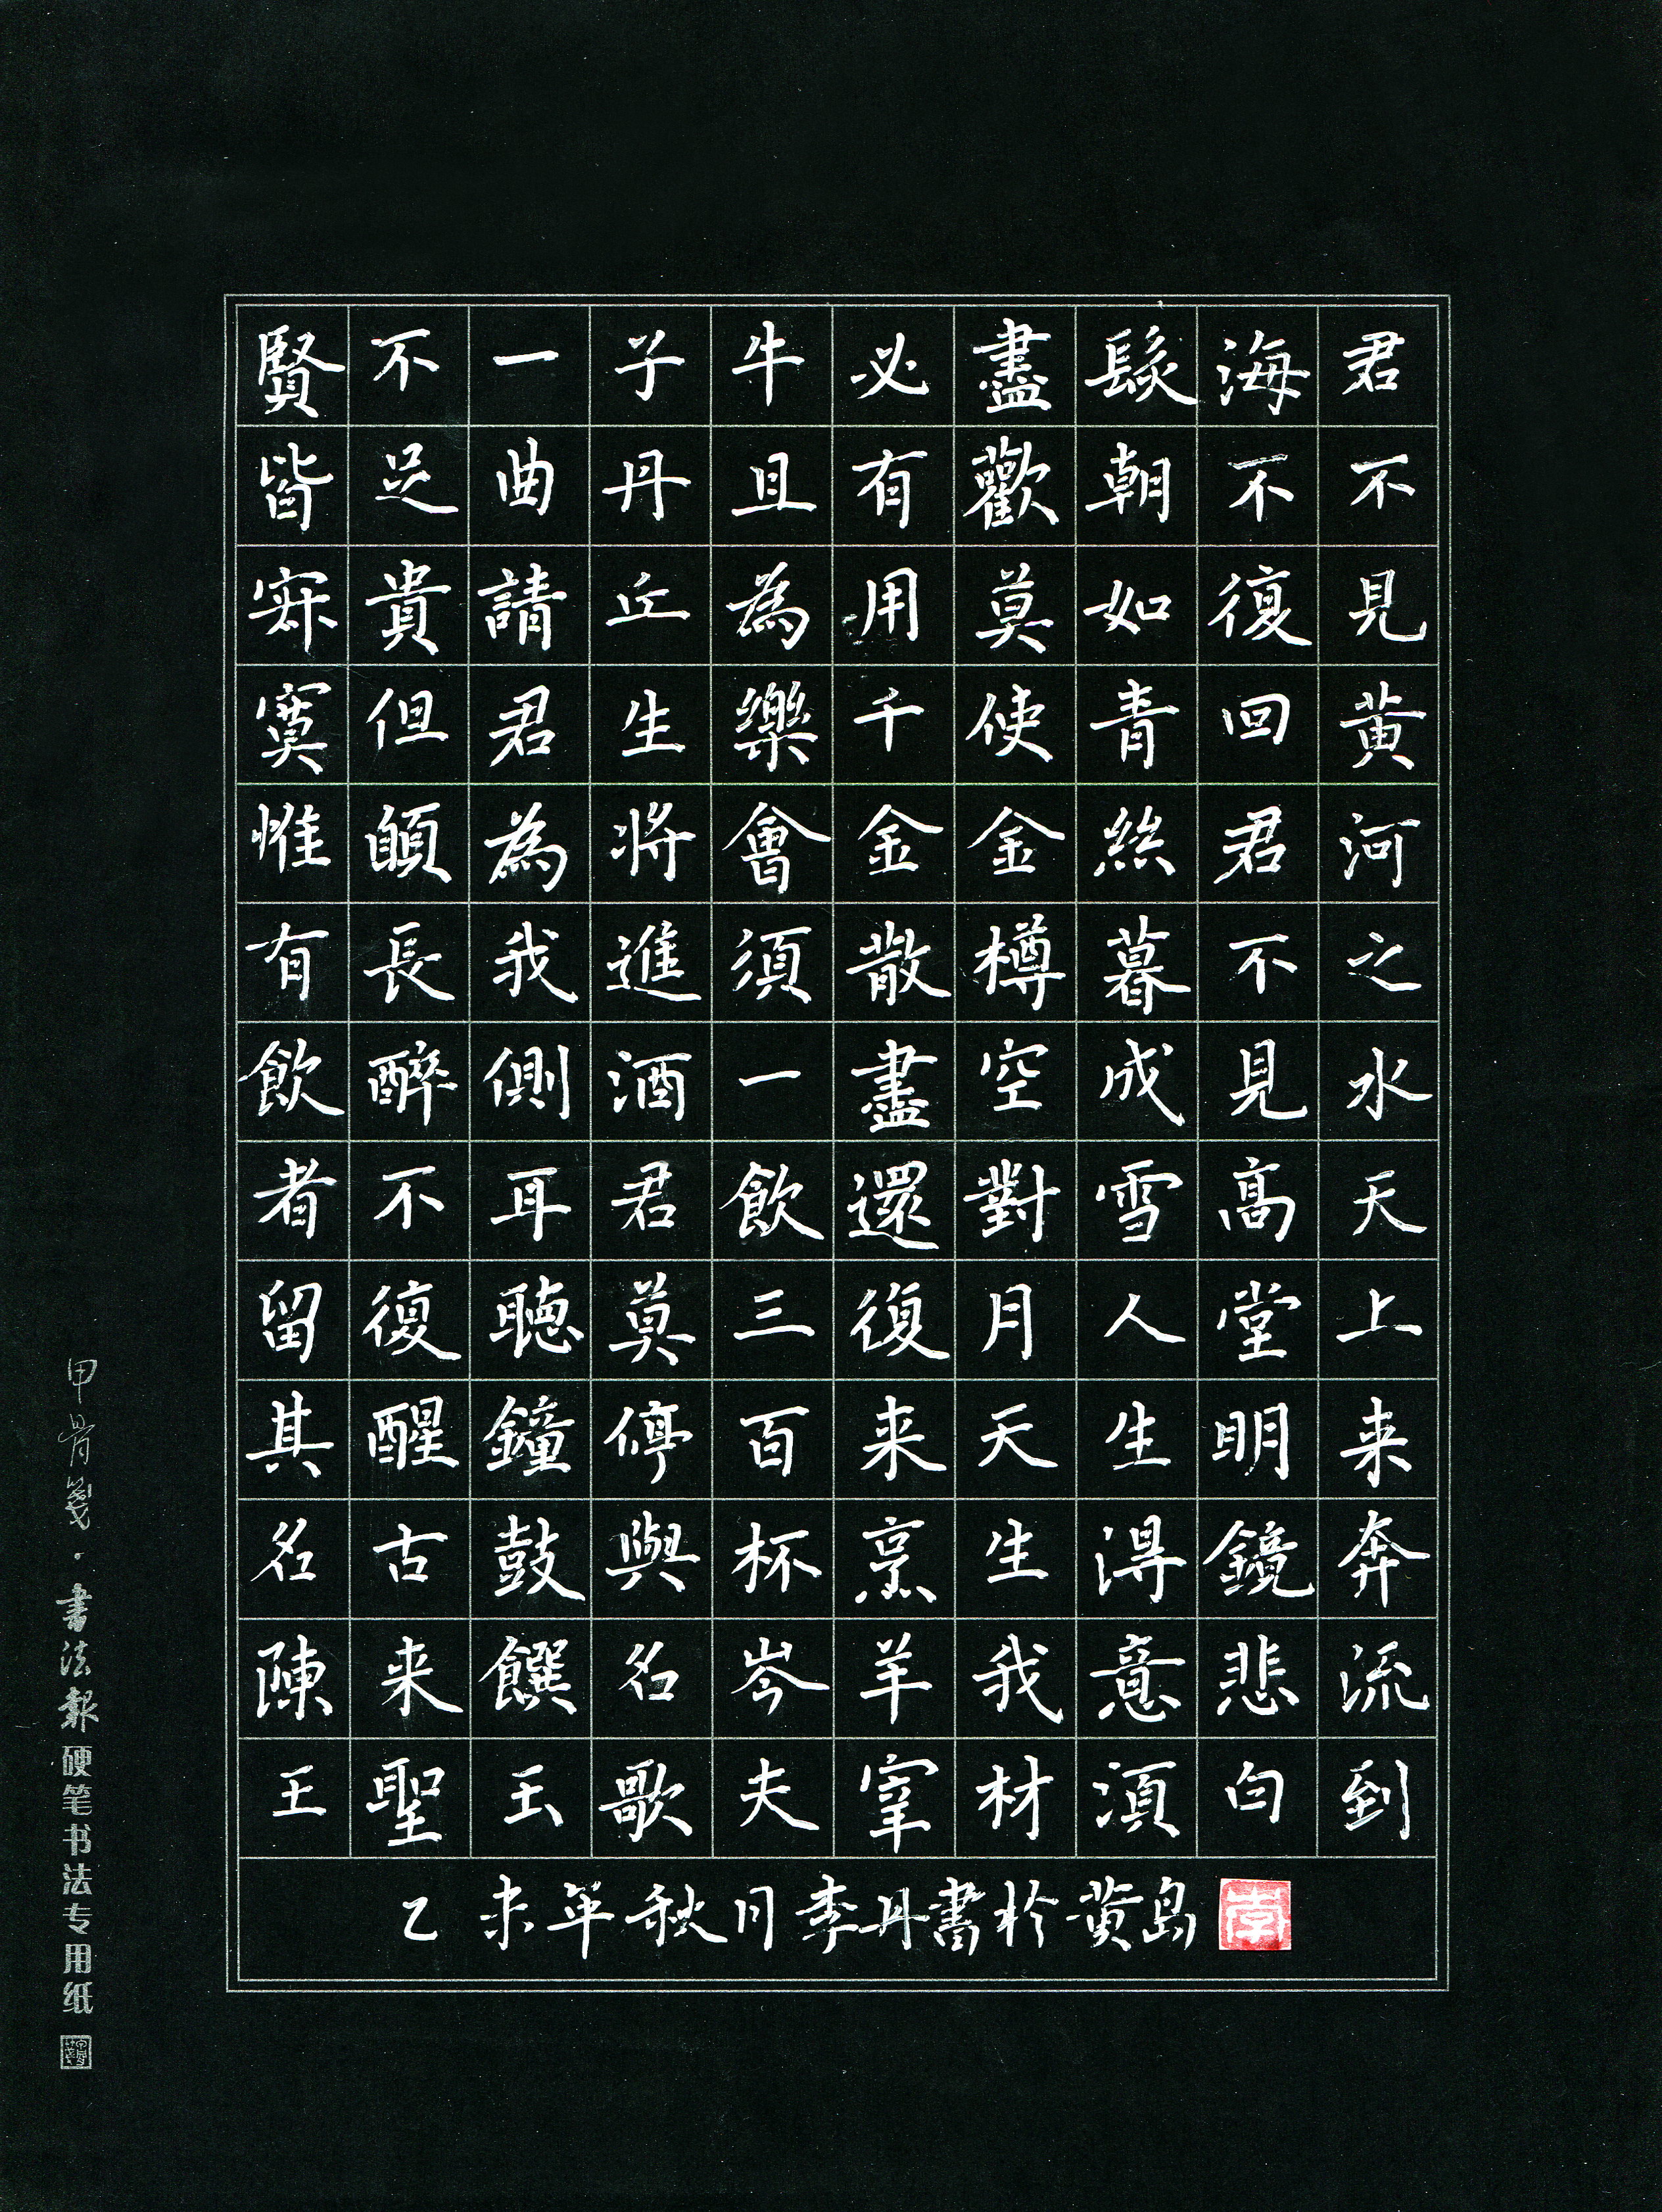 君不見黄河之水天上来奔流到
海不復回君不見髙堂明鏡悲白
髮朝如青絲暮成雪人生得意須
盡歡莫使金樽空對月天生我材
必有用千金散盡還復来烹羊宰
牛且為樂會須一飲三百杯岑夫
子丹丘生將進酒君莫停與名歌
一曲請君為我側耳聽鐘鼓饌玉
不足貴但願長醉不復醒古来聖
賢皆寂寞惟有飲者留其名陳王
乙未年秋月李丹書於黄島
甲骨笺·書法報硬笔书法专用纸